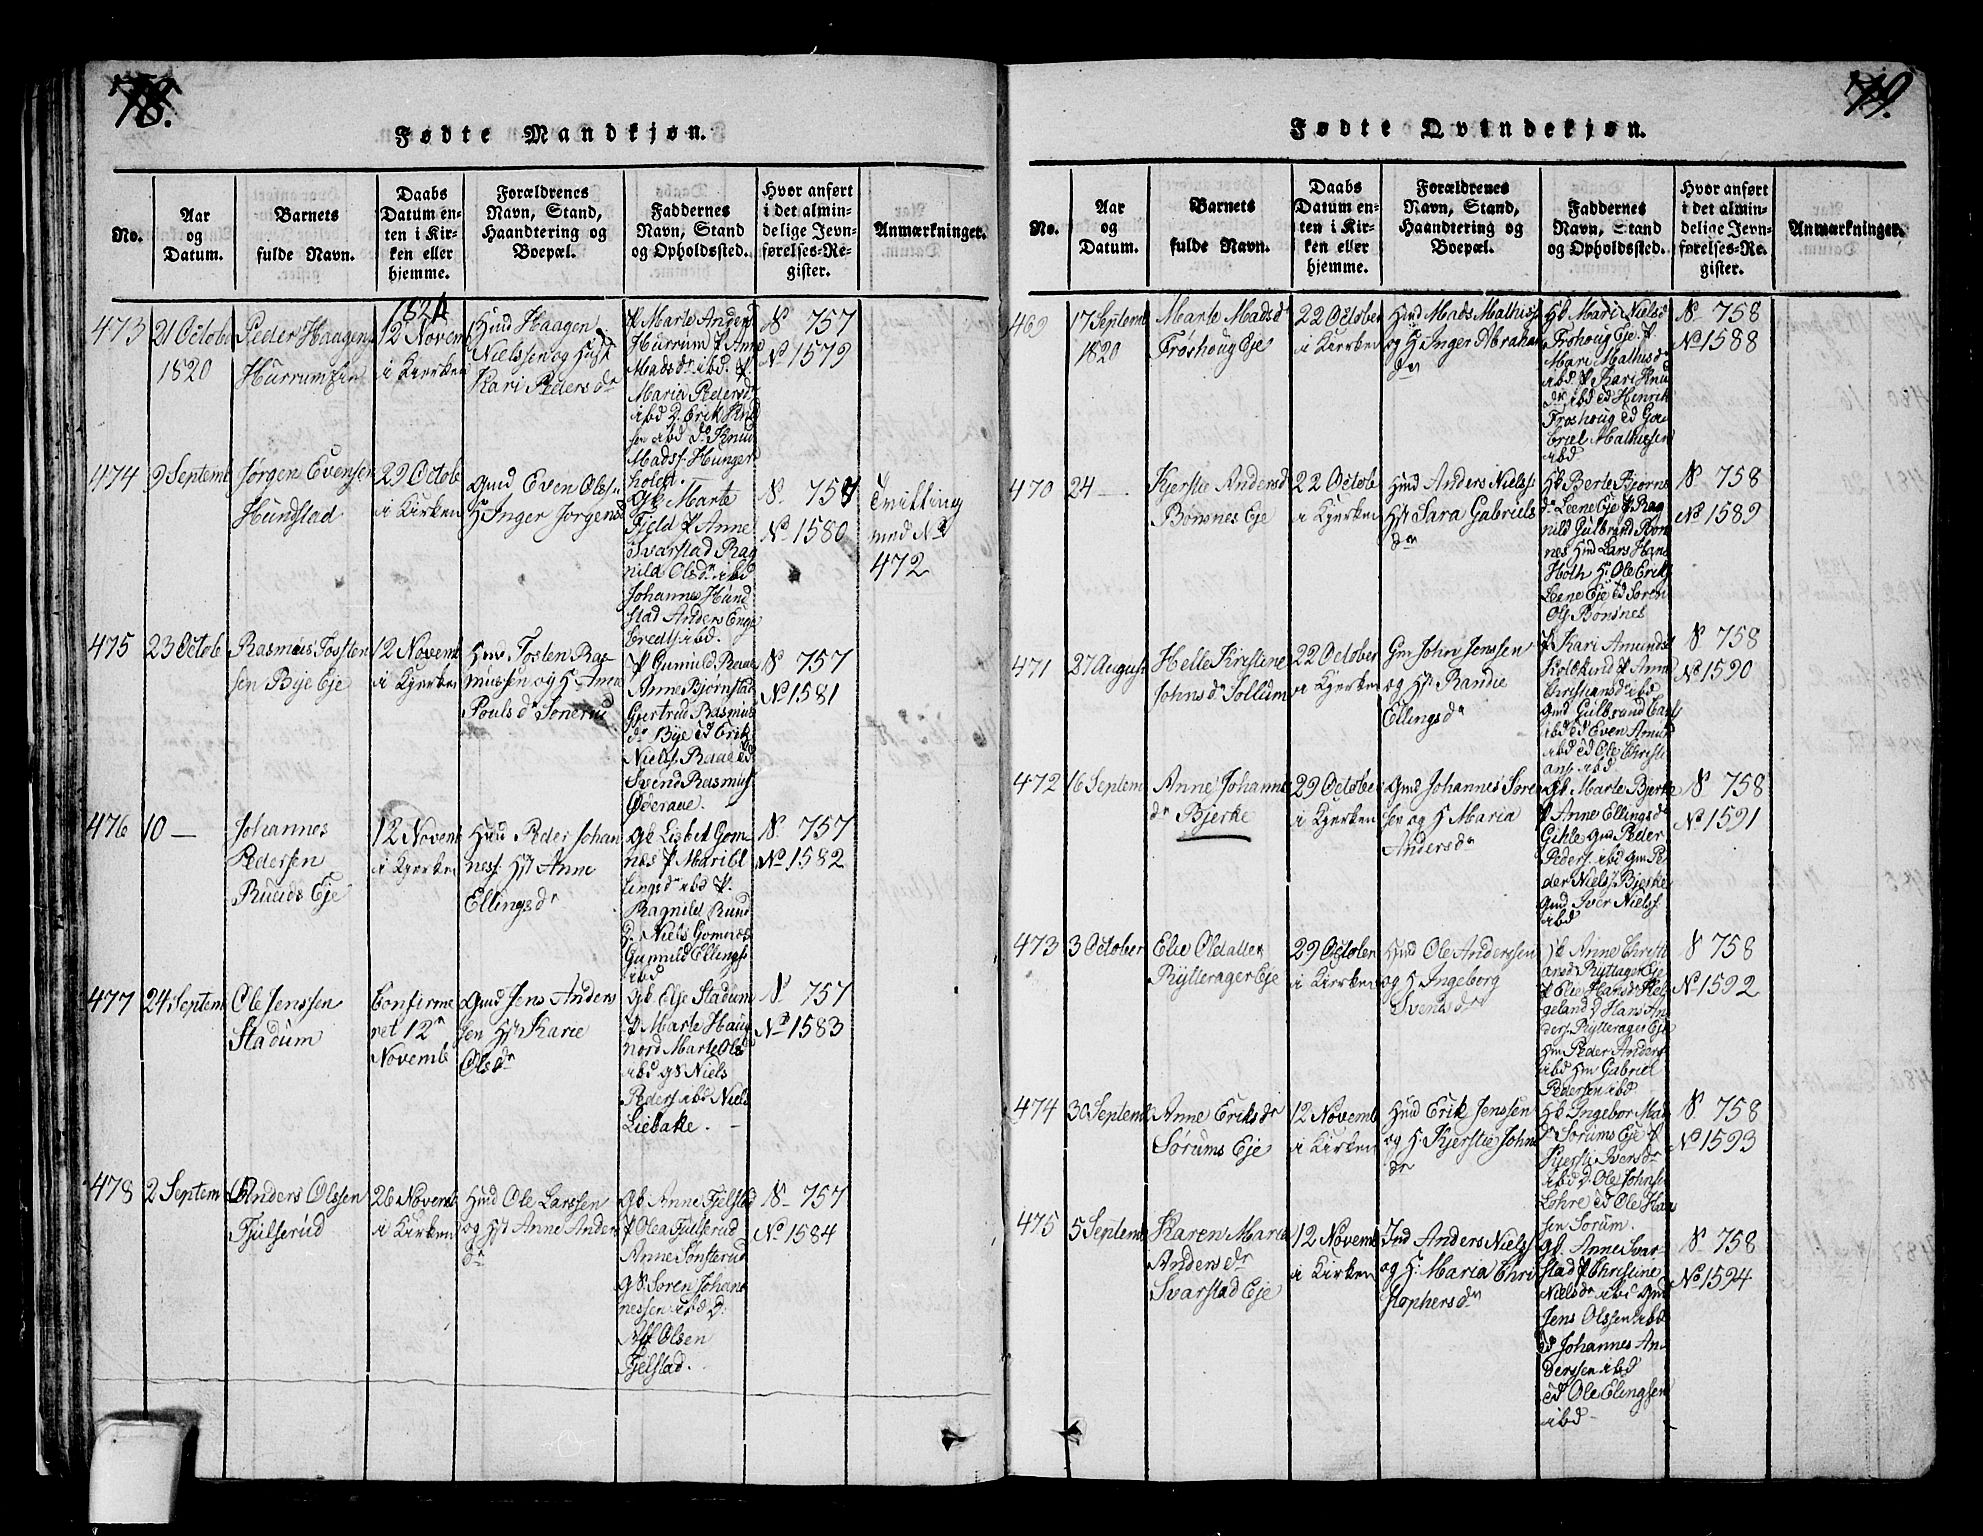 78.
Fødte Mandkjøn.
No.
Aar
og
Datum.
Barnets
fulde Navn.
Daabs
Datum en-
ten i Kir-
ken eller
hjemme.
Forældrenes
Navn, Stand,
Haandtering og
Boepæl.
Faddernes
Navn, Stand
og Opholdssted.
Hvor anført
i det almin-
delige Jevn-
førelses-Re-
gister.
Anmærkninger.
473
21 Octobr
1820
Peder Haagens
Hurrumsfin
12 Novemb
i Kjerken
Hmd Haagen
Nielssen og Hust
Kari Pedersdr
P Marte Anders
Hurrum P Anne
Madsdr ibd. P
Marie Pedersdr
ibd D. Erik Knud
sen ibd do Knud
Madss. Hunger
holdt.
N 757
No 1579
474
9 Septemb
Jørgen Evensen
Hundstad
29 Octob
i Kirken
Gmd Even Olss
H Inger Jørgensd
Gk Marte
Fjeld P Anne
Svarstad Rag
nild Olsdr ibd
Johannes Hund
stad Anders Enge
bredts ibd.
N. 757
No 1580
Tvilling
med No
472
475
23 Octob
Rasmus Tosten
sen Bye Eje
12 Novemb
i Kjerken
Hmd Tosten Ras
mussen og H. Anne
Pouls dr Sonerud
P Gunuld Raae
Anne Bjørnstad
Gjertrud Rasmus
dr Bye ed Erik
Nielss. Raae ed
Svend Rasmuss
Oderaae.
N 757
No 1581
476
10 —
Johannes
Pedersen
Ruuds Eje
12 Novem
i Kjerken
Hmd Peder Johan
ness. Hst Anne
Ellingsdr
Gk Lisbet Gom
næs P Marild
lingsdr ibd P.
Ragnild Ruud
D. Niels Gomnæs
Gunnild Ellings
ibd
N. 757
No 1582
477
24 Septem
Ole Jenssen
Stadum
Confirme
ret 12te
Novemb
Gmd Jens Anders
sen Hst Karie
Olsdr
Gk Else Stadum
P Marte Haug
nord Marte Olsd
ibd gs Niels
Peders ibd Niels
Liebakke. —
N 757
No 1583
478
2 Septem
Anders Olssen
Fjulserud
26 Novemb
i Kirken
Hmd Ole Larssen
og Hst Anne Anders
dr
Gk Anne Fjelstad
P Olea Fjulserud
Anne Sonsterud
gs Soren Johan
nessen ibd D.
Alf Olsen
Fjelstad.
N 757
No 1584
79.
Fødte Qvindekjøn.
No.
Aar
og
Datum.
Barnets
fulde Navn.
Daabs
Datum en-
ten i Kir-
ken eller
hjemme.
Forældrenes
Navn, Stand,
Haandtering og
Boepæl.
Faddernes
Navn, Stand
og Opholdssted.
Hvor anført
i det almin-
delige Jevn-
førelses-Re-
gister.
Anmærkninger.
469
17 Septemb
1820
Marte Madsd
Froshoug Eje
22 October
i Kirken
Hmd Mads Mathiss
og H Inger Abraham
dr
Hk Mari Nielsd
Frohoug Eje P
Mari Mathisdr
ibd P Kari Knu
dr ibd ed Henrik
Froshoug ed Ga
briel Mathissen
ibd
N 758
No 1588
470
24 —
Kjerstie Andersd
Bonsnes Eje
22 Octob
i Kjerken
Hmd Anders Nielss
Hst Sara Gabriels
dr
Hk Berte Bjorns
dr Leene Eje P Rag
nild Gulbrand Bons
nes Hmd Lars Hans
Hoth H. Ole Eriks
Leene Eje ed Soren
Ols Bonsnes
N 758
No 1589
471
27 August
Helle Kristine
Johnsdr Sollum
22 October
i Kjerken
Gm John Jenssen
og Hst Randie
Ellingsdr
P Kari Amunds
Kolkind P Anne
Christiansdr ibd
gmd Gulbrand Carls
ibd ed Even Amund
ibd ed Ole Christi
ans ibd
N 758
No 1590
472
16 Septem
Anne Johanne
dr Bjerke
29 October
i Kirken
Gmd Johannes Sore
sen og H Maria
Andersdr
Gk Marte Bjerke
P Anne Ellingsdr
Gihle gmd Peder
Peders. ibd gm Pe
der Nielss Bjerke
gmd Iver Nielss
ibd
N 758
No 1591
473
3 October
Elie Oldatter
Rytterager Eje
29 October
i Kirken
Hmd Ole Anderssen
og H Ingeborg
Svendsdr
Anne Christi
ansd Ryttager Eje
P Elie Hansdr Hel
geland D Hans An
ders Rytterager Eje
Hm Peder Anders
ibd Hm Gabriel
Pedersen ibd
N 758
No 1592
474
30 Septemb
Anne Eriksdr
Sørums Eje
12 Novemb
i Kirken
Hmd Erik Jenssen
og H. Kjerstie Johns
dr
Hk Ingebor Mad
dr Sorums Eje P
Kjersti Iversdr
ibd D. Ole Johns
Lohre ed Ole Han
sen Sorum.
N 758
No 1593
475
5 Septemb
Karen Marie
Andersdr
Svarstad Eje
12 Novemb
i Kirken
Ind Anders Nielss
og H. Maria Chri
stophersdr
Gk. Anne Svar-
stad P Christine
Nielsdr ibd gmd
Jens Olssen ibd
ed Johannes An
derssen ibd
ed Ole Elingsen
ibd —
N 758
No 1594